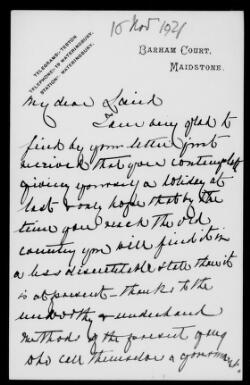 15 Nov 1921
TELEGRAMS: TESTON
TELEPHONE: 19 WATERINGBURY.
STATION: WATERINGBURY.
BARHAM COURT,
MAIDSTONE.
My dear Laird
I am very glad to
find by your letter just
received that you contemplate
giving yourself a holiday at
last & only hope that by the
time you reach the old
country you will find it in
a less discreditable state than it
is at present – thanks to the
unworthy & underhand
methods of the present gang
who call themselves a government.